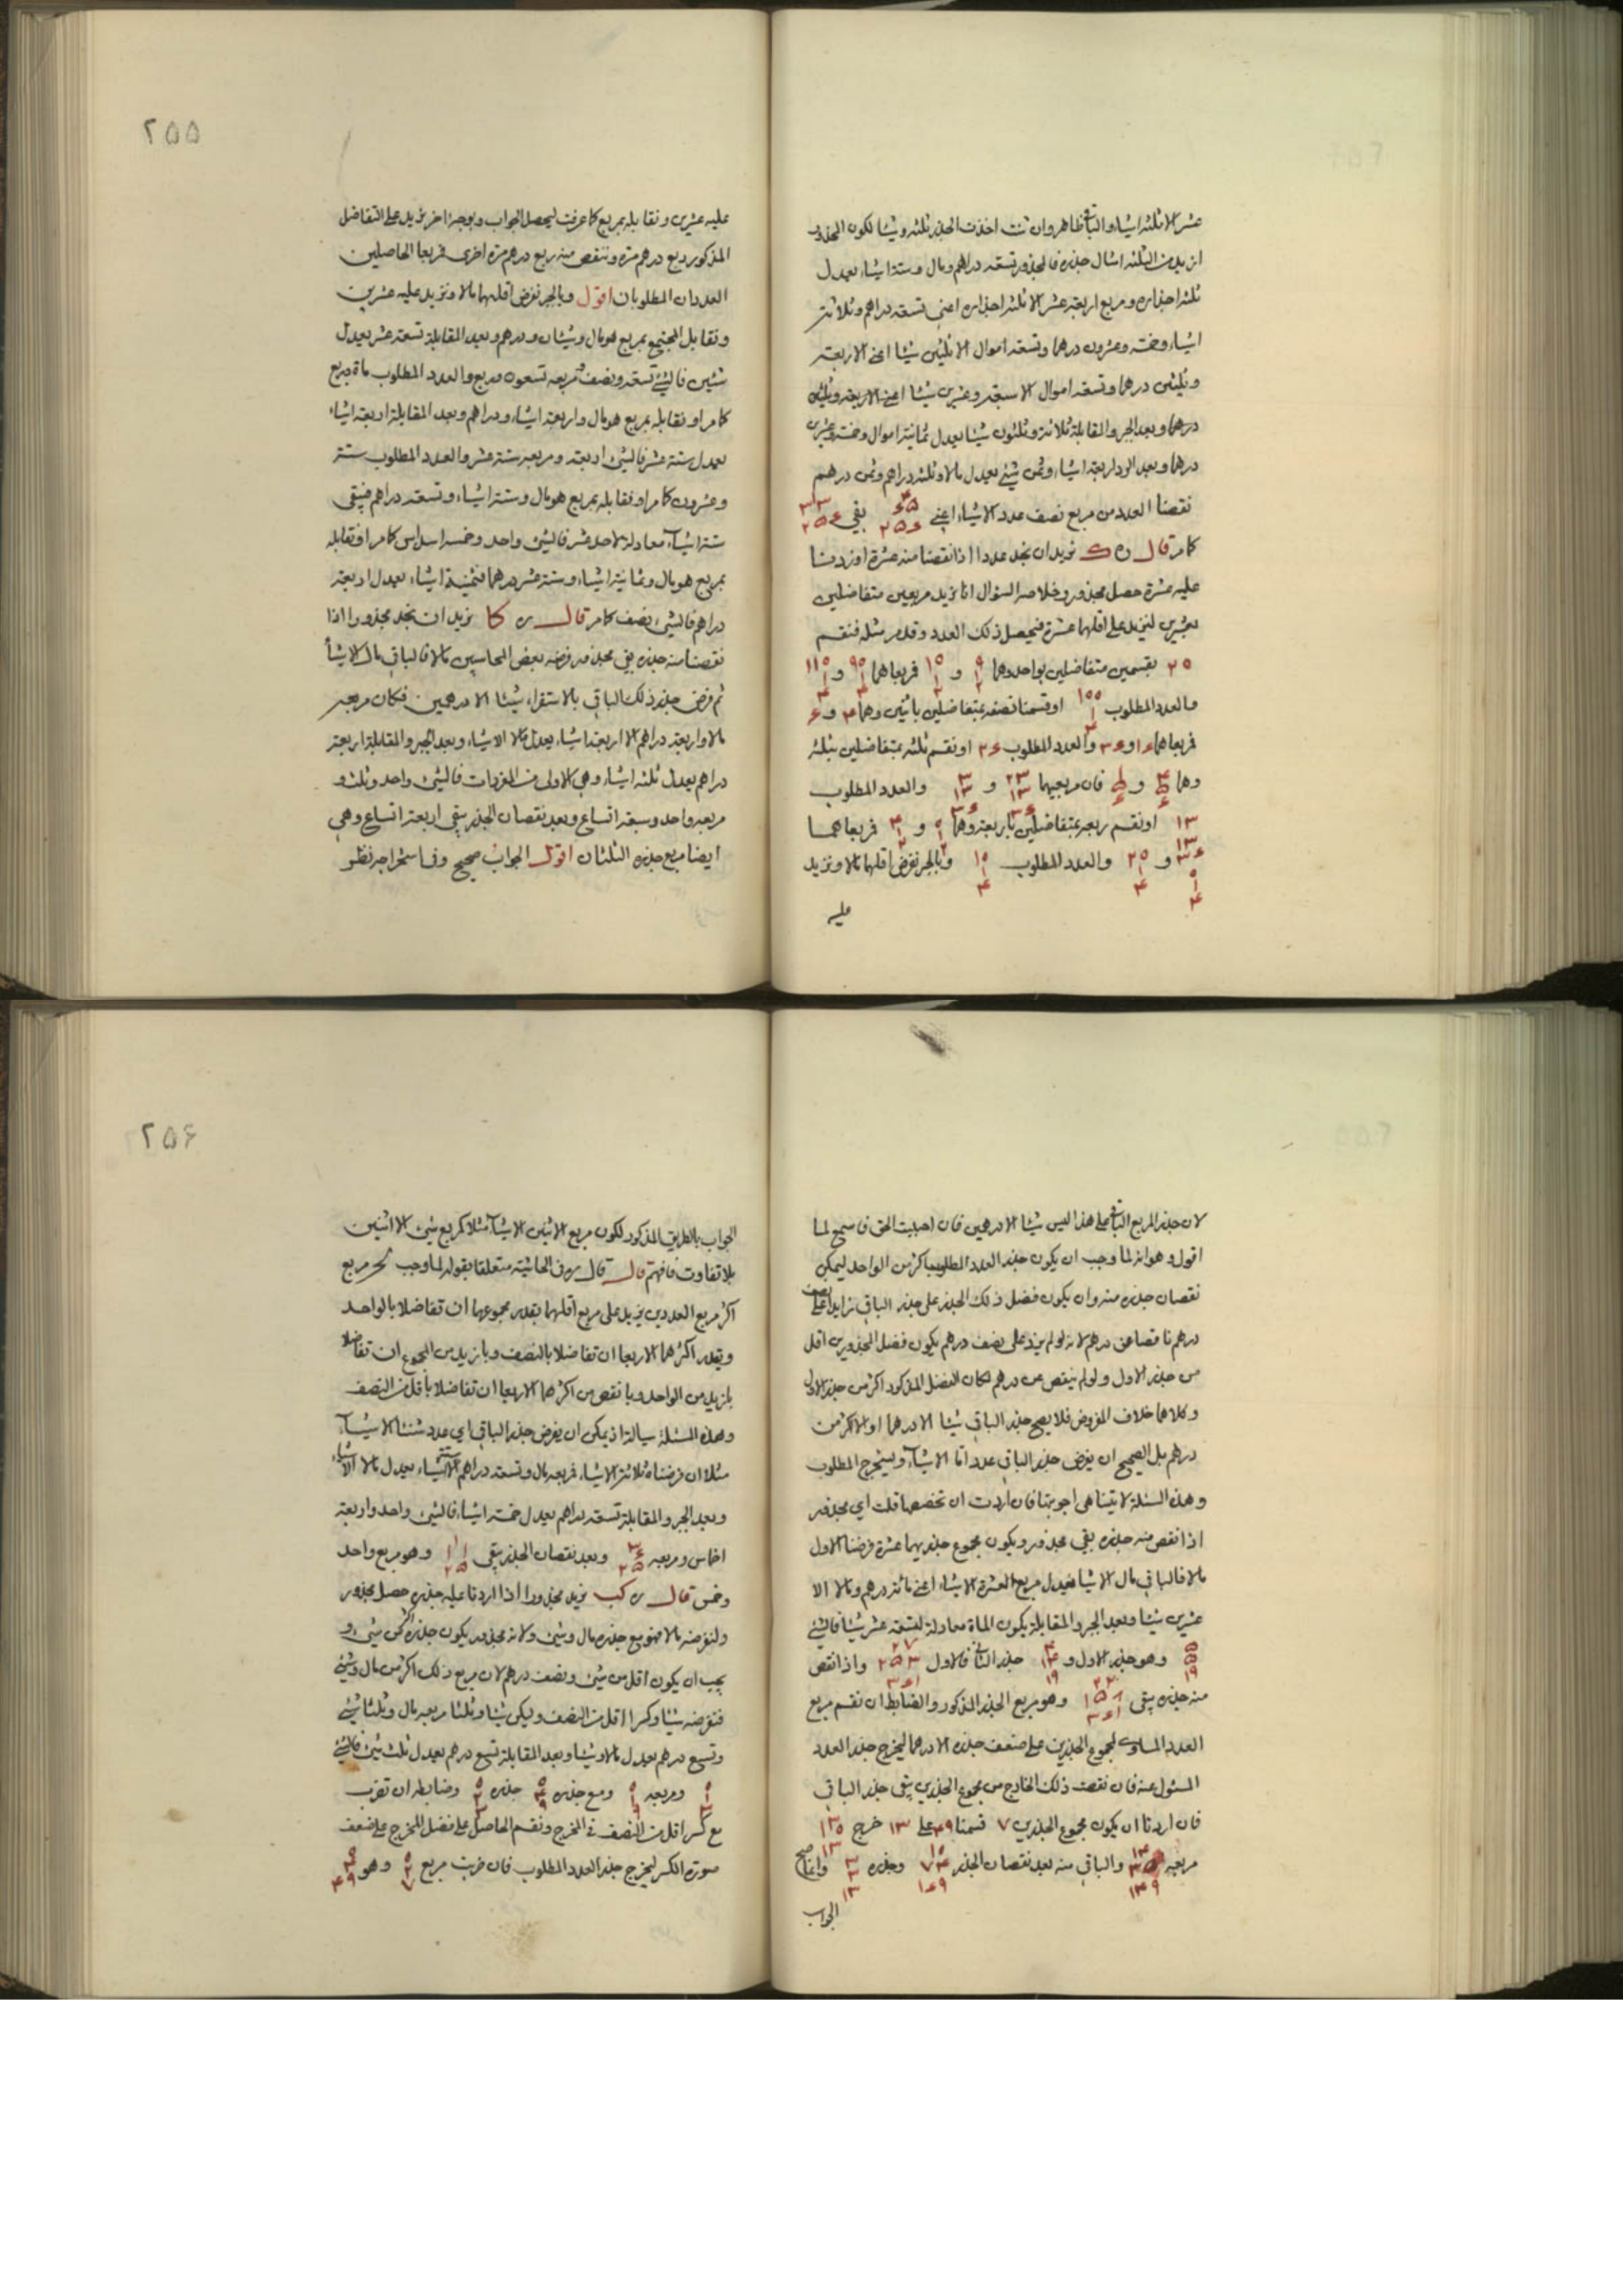 عشر الا ثلثة اشياء والباقى ظاهر وان شئت اخذت الجذر ثلثة وشيئا لكون المجذور
ازيد من الثلثة امثال جذره فالمجذور تسعة دراهم ومال وستة اشياء يعدل
ثلثة اجذاره ومربع اربعة عشر الا ثلثة اجذاره اعنى تسعة دراهم وثلاثة
اشياء وخمسة وعشرون درهما وتسعة اموال الا ثلثين شيئا اعنى الاربعة
وثلثين درهما وتسعة اموال الا سبعة وعشرين شيئا اعنى الاربعة وثلثين
درهما وبعد الجبر والمقابلة ثلاثة وثلثون شيئا يعدل ثمانية اموال وخمسة وعشرين
درهما وبعد الرد اربعة اشياء وثمن شئ يعدل مالا وثلثة دراهم وثمن درهم
نقصنا العدد من مربع نصف عدد الاشياء اعنى ٢٥٦ بقى ٢٥٦
كامر قال ره ك نريد ان نجد عددا اذا نقصنا منه عشرة او زدنا
عليه عشرة حصل مجذور وخلاصة السؤال انا نريد مربعين متفاضلين
بعشرين ليزيد على اقلهما عشرة فيحصل ذلك العدد وقد مر مثله فنقسم
٢٠ بقسمين متفاضلين بواحد وهما و فربعاهما ٩٠ و ١١٠
والعدد المطلوب ١٠٠ او قسمنا نصفه بمتفاضلين باثنين وهما ٤ و ٦
فربعاهما ١٦ و ٣٦ والعدد المطلوب ٢٦ او نقسم ثلثه بمتفاضلين بثلثة
وهما و فان مربعيهما و والعدد المطلوب
١٣ او نقسم ربعه بمتفاضلين باربعة وهما و فربعاهما
و ٢٠ والعدد المطلوب ١٠ وبالجبر نفرض اقلهما مالا ونزيد
عليه
عليه عشرين ونقابله بمربع كما عرفت ليحصل الجواب وبوجه اخر نزيد على التفاضل
المذكور ربع درهم مرة وننقص منه ربع درهم مرة اخرى فربعا الحاصلين
العددان المطلوبان اقول وبالجبر نفرض اقلهما مالا ونزيد عليه عشرين
ونقابل المجتمع بمربع هو مال وشيئان ودرهم وبعد المقابلة تسعة عشر يعدل
شيئين فالشئ تسعة ونصف ومربعه تسعون وربع والعدد المطلوب مائة وربع
كامر او نقابله بمربع هو مال واربعة اشياء ودراهم وبعد المقابلة اربعة اشياء
يعدل ستة عشر فالشئ اربعة ومربعه ستة عشر والعدد المطلوب ستة
وعشرون كامر او نقابله بمربع هو مال وستة اشياء وتسعة دراهم فيبقى
ستة اشياء معادلة لاحد عشر فالشئ واحد وخمسة اسداس كامر او نقابله
بمربع هو مال وثمانية اشياء وستة عشر درهما فثمنية اشياء يعدل اربعة
دراهم فالشئ نصف كامر قال ره كا نريد ان نجد مجذورا اذا
نقصنا منه جذره بقى مجذور فرضه بعض المحاسبين مالا فالباقى مال الا شيئا
ثم فرض جذر ذلك الباقى بالاستقراء شيئا الا درهمين فكان مربعه
مالا واربعة دراهم الا اربعة اشياء يعدل مالا الا شيئا وبعد الجبر والمقابلة اربعة
دراهم يعدل ثلثة اشياء وهى الاولى من المفردات فالشئ واحد وثلث و
مربعه واحد وسبعة اتساع وبعد نقصان الجذر يبقى اربعة اتساع وهى
ايضا مربع جذره الثلثان اقول الجواب صحيح وفى استخراجه نظر
٢٥٥
لان جذر المربع الباقى على هذا ليس شيئا الا درهمين فان احببت الحق فاسمع لما
اقول وهو انه لما وجب ان يكون جذر العدد المطلوب اكثر من الواحد ليمكن
نقصان جذره منه وان يكون فضل ذلك الجذر على جذر الباقى زايدا على نصف
درهم ناقصا عن درهم لانه لو لم يزد على نصف درهم يكون فضل المجذورين اقل
من جذر الاول ولو لم ينقص عن درهم لكان الفضل المذكور اكثر من جذر الاول
وكلاهما خلاف المفروض فلا يصح جذر الباقى شيئا الا درهما او الا اكثر من
درهم بل الصحيح ان يفرض جذر الباقى عددا ما الا شيئا ويستخرج المطلوب
وهذه المسئلة لا يتناهى اجوبتها فان اردت ان تخصصها قلت اى مجذور
اذا نقص منه جذره بقى مجذور ويكون مجموع جذريهما عشرة فرضنا الاول
مالا فالباقى مال الا شيئا فيعدل مربع العشرة الا شيئا اعنى مائة درهم ومالا الا
عشرين شيئا وبعد الجبر والمقابلة يكون المائة معادلة لتسعة عشر شيئا فالشئ
وهو جذر الاول و جذر الثانى فالاول واذا نقص
منه جذره يبقى وهو مربع الجذر المذكور والضابط ان نقسم مربع
العدد المساوى لمجموع الجذرين على ضعف جذره الا درهما ليخرج جذر العدد
المسئول عنه فان نقصت ذلك الخارج من مجموع الجذرين يبقى جذر الباقى
فان اردنا ان يكون مجموع الجذرين ٧ قسمنا ٤٩ على ١٣ خرج
مربعه والباقى منه بعد نقصان الجذر وجذره وانما صح
الجواب
الجواب بالطريق المذكور لكون مربع الاثنين الا شيئا مثلا كمربع شئ الا اثنين
بلا تفاوت فافهم قال قال ره فى الحاشية متعلقا بقوله لما وجب مربع
اكثر مربع العددين يزيد على مربع اقلهما بقدر مجموعهما ان تفاضلا بالواحد
وبقدر اكثرهما الا ربعا ان تفاضلا بالنصف وبازيد من المجموع ان تفاضلا
بازيد من الواحد وبانقص من اكثرهما الا ربعا ان تفاضلا باقل من النصف
وهذه المسئلة سيالة اذ يمكن ان يفرض جذر الباقى اى عدد شئنا الا شيئا
مثلا ان فرضناه ثلاثة الا شيئا فربعه مال وتسعة دراهم الا ستة اشياء يعدل مالا الا شيئا
وبعد الجبر والمقابلة تسعة دراهم يعدل خمسة اشياء فالشئ واحد واربعة
اخماس ومربعه وبعد نقصان الجذر يبقى وهو مربع واحد
وخمس قال ره كب نريد مجذورا اذا زدنا عليه جذره حصل مجذور
ولنفرضه مالا فهو مع جذره مال وشئ ولانه مجذور يكون جذره اكثر من شئ و
يجب ان يكون اقل من شئ ونصف درهم لان مربع ذلك اكثر من مال وشئ
فنفرضه شيئا وكسرا اقل من النصف وليكن شيئا وثلثا مربعه مال وثلثا شئ
وتسع درهم يعدل مالا وشيئا وبعد المقابلة تسع درهم يعدل ثلث شئ فالشئ
ومربعه ومع جذره جذره وضابطه ان تضرب
مربع كسر اقل من النصف فى المخرج ونقسم الحاصل على فضل المخرج على ضعف
صورة الكسر ليخرج جذر العدد المطلوب فان ضربت مربع وهو
٢٥٦